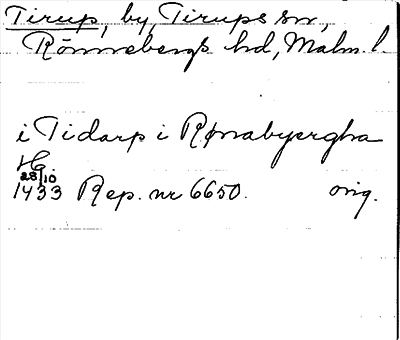 Tirup, by, Tirups sn,
Rönnebergs hd, Malm. l.
i Tidarp i Rønabyergha
H
28/10
1433 Rep. nr 6650. orig.